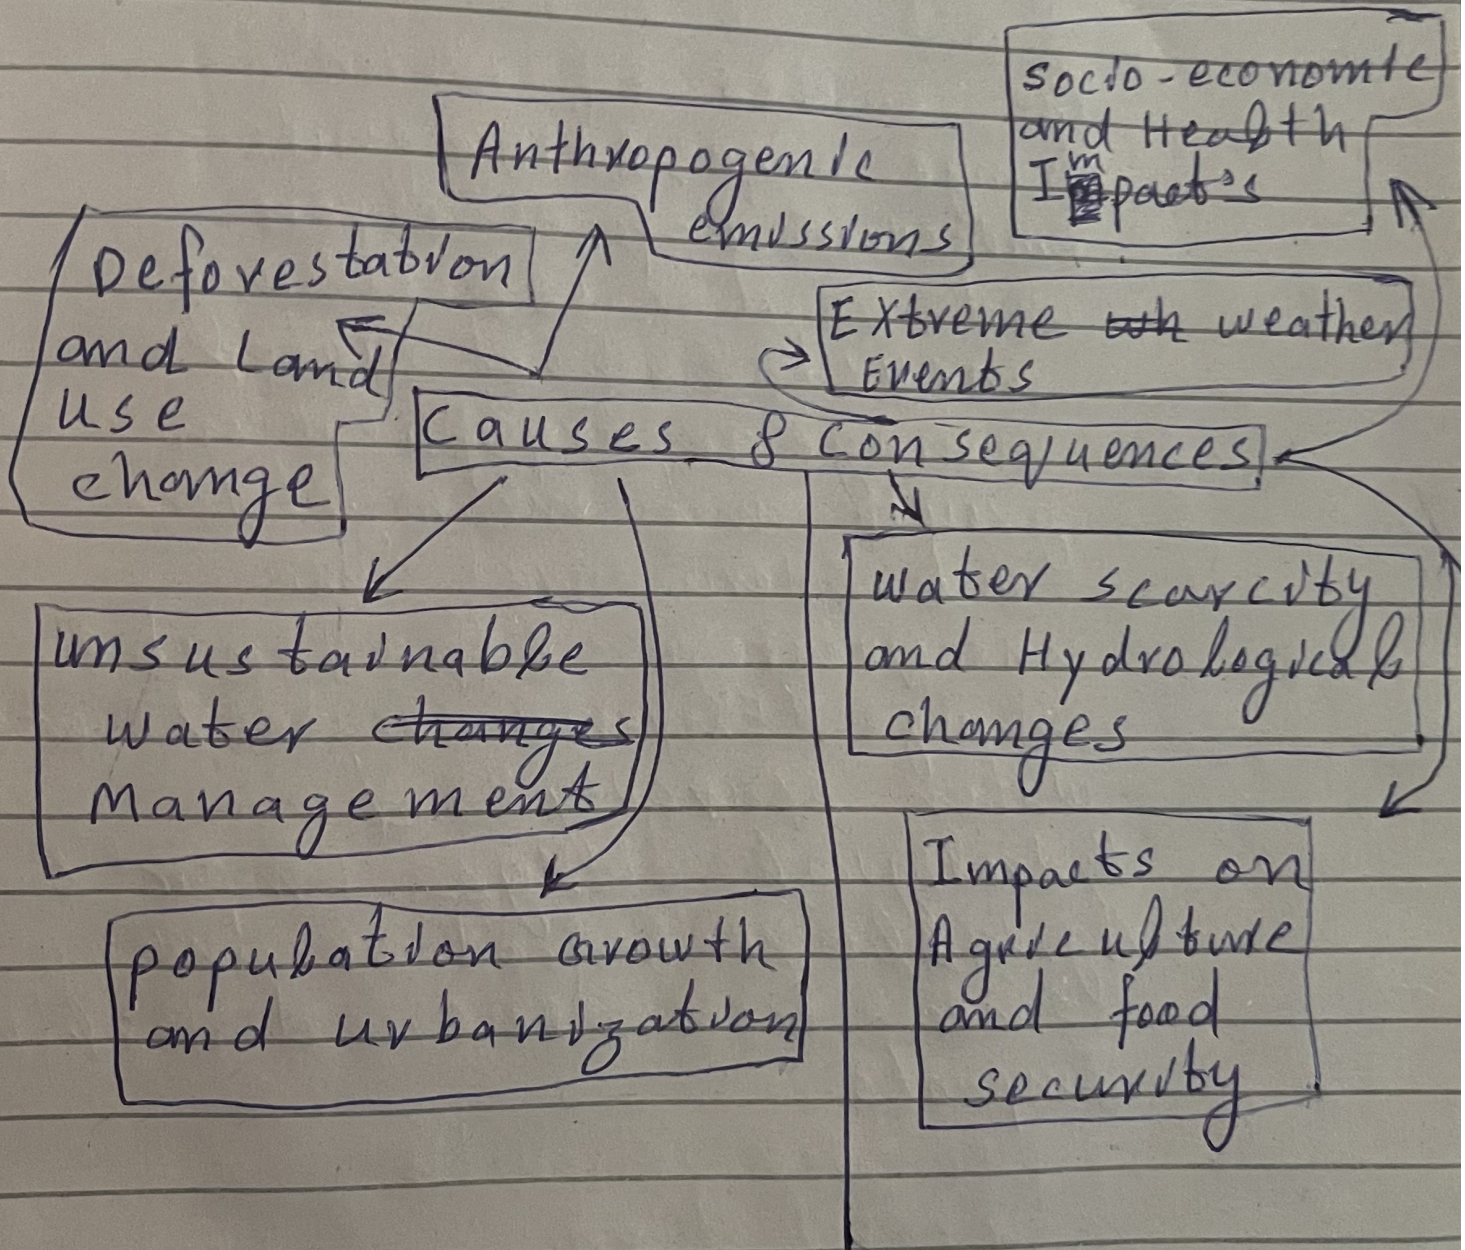 Socio-economic
and Health
Impact's
Anthropogenic
emissions
Deforestation
and Land
use
change
Extreme weather
Events
Causes & Consequences
unsustainable
water changes
Management
water scarcity
and Hydrological
changes
population Growth
and urbanization
Impacts on
Agriculture
and food
security